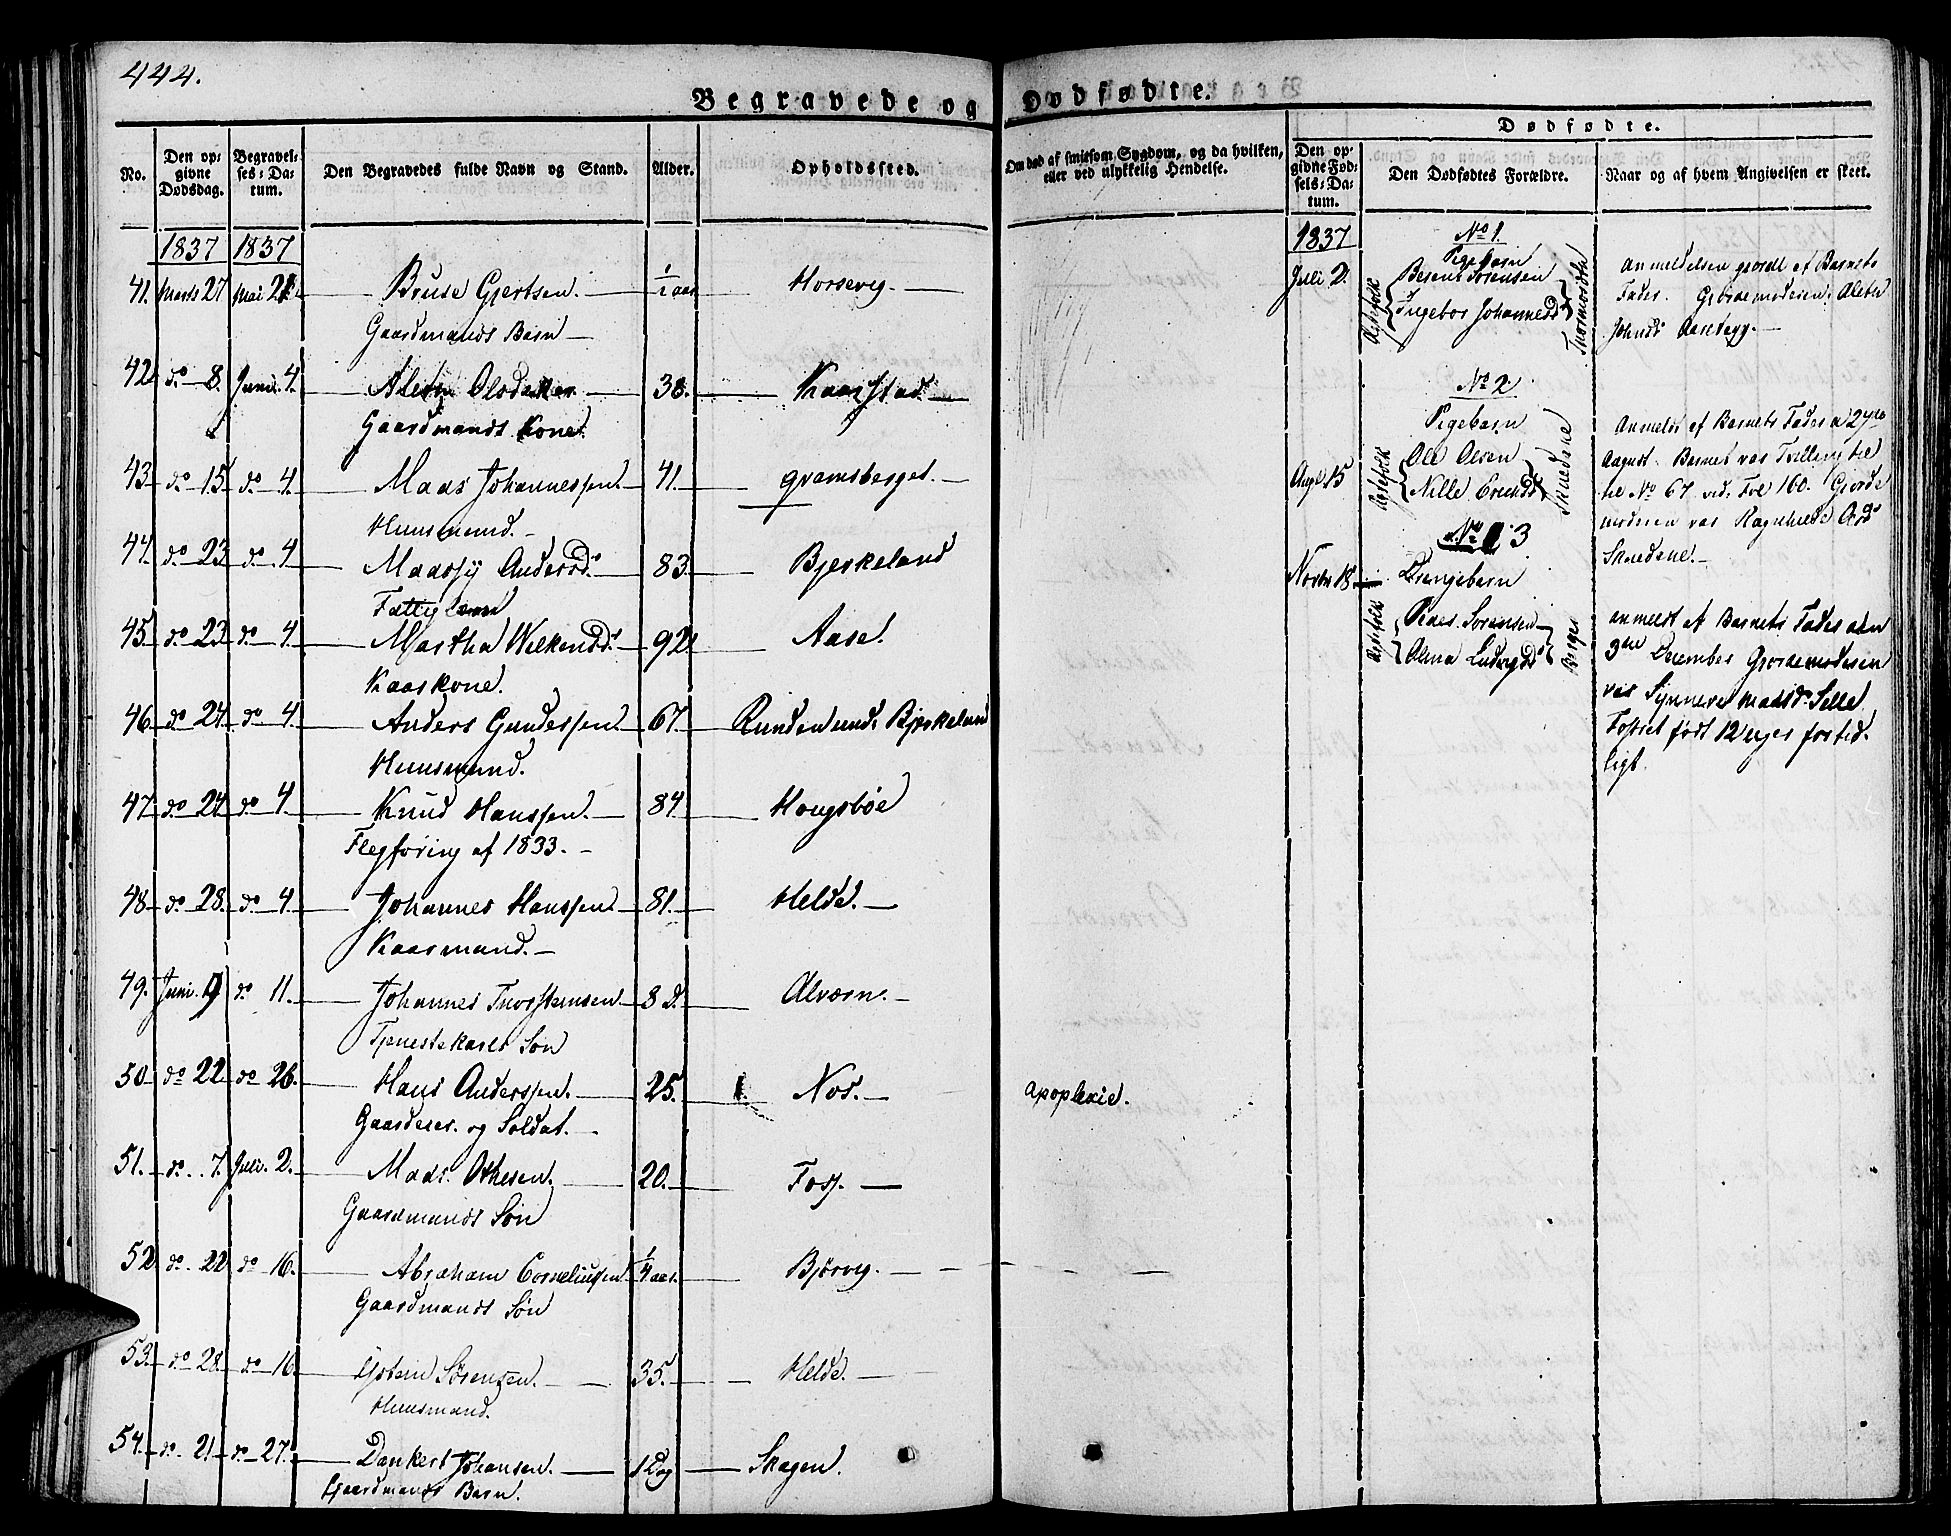 444.
Begravede og Dødfødte.
No. Den opgivne Dødsdag. Begravelses-Datum. Den Begravedes fulde Navn og Stand. Alder. Opholdssted.
1837 1837
41. Marts 27 Mai 21 Bruse Gjertsen. 1/2 aar Horsevig.
Gaardmands Barn
42 do 8. Juni 4. 38. Kaarstad
Gaardmands Kone.
43 do 15 do 4. Maas Johannessen. 41. Gramsberget.
Huusmand.
44. do 23 do 4 Maassy Andersd. 83. Bjerkeland
Fattiglem
45. do 23 do 4. Martha Welkensd. 92 Aase.
Kaarkone.
46. do 24. do 4. Anders Gundersen. 67. Runden und. Bjerkeland
Huusmand.
47. do 24. do 4 Knud Hanssen. 84. Hougsbøe
Flegføring af 1833.
48 do 28. do 4. Johannes Hanssen. 81. Helde.
Kaarmand.
49. Juni 9 do 11. Johannes Thorsteinsen. 8 D. Alværn.
Tjenestekarls Søn
50 do 22 do 26. Hans Anderssen. 25. Nos.
Gaardeier. og Soldat.
51. do 7. Juli. 2. Mads. Othesen. 20. Foss.
Gaardmands Søn
52 do 22 do 16. Abraham Corneliussen. 1/4 aar. Bjørvig.
Gaardmands Søn
53. do 28. do 16. Østein Sørensen. 35. Helde.
Huusmand.
54. do 21 do 27. Dankert Johansen. 1 Dag Skagen.
Gaardmands Barn.
Om død af smitsom Sygdom, og da hvilken, eller ved ulykkelig Hendelse.
apoplexie.
Dødfødte.
Den opgidne Fødsels-Datum. Den Dødfødtes Forældre. Naar og af hvem Angivelsen er skeet.
1837
No 1.
Pigebarn
Juli 2. Ægtefolk Berent Sørensen
Ingebor Johannesd.
Anmeldelsen gjordt af Barnets
Fader. Gjordemoderen: Alethe
Johnsd.
No 2
Pigebarn
Augt. 15 Ægtefolk Ole Olsen
Nille Erichsd. Skuedsne
Anmeldt af Barnets Fader a 27de
August. Barnet var Tvilling til
til No 67. vid. Fol 160. Gjorde
moderen var Ragnhilde
Skuedsne.
No 3
Novbr 18 Drengebarn
Ægtefolk Peder Sørensen
Anna Ludvigsd. Berge
anmeldt af Barnets Fader den
3die December Gjordemoderen
var Synneve Madsd. Selle.
Fostret født 12 uger fortid-
ligt.